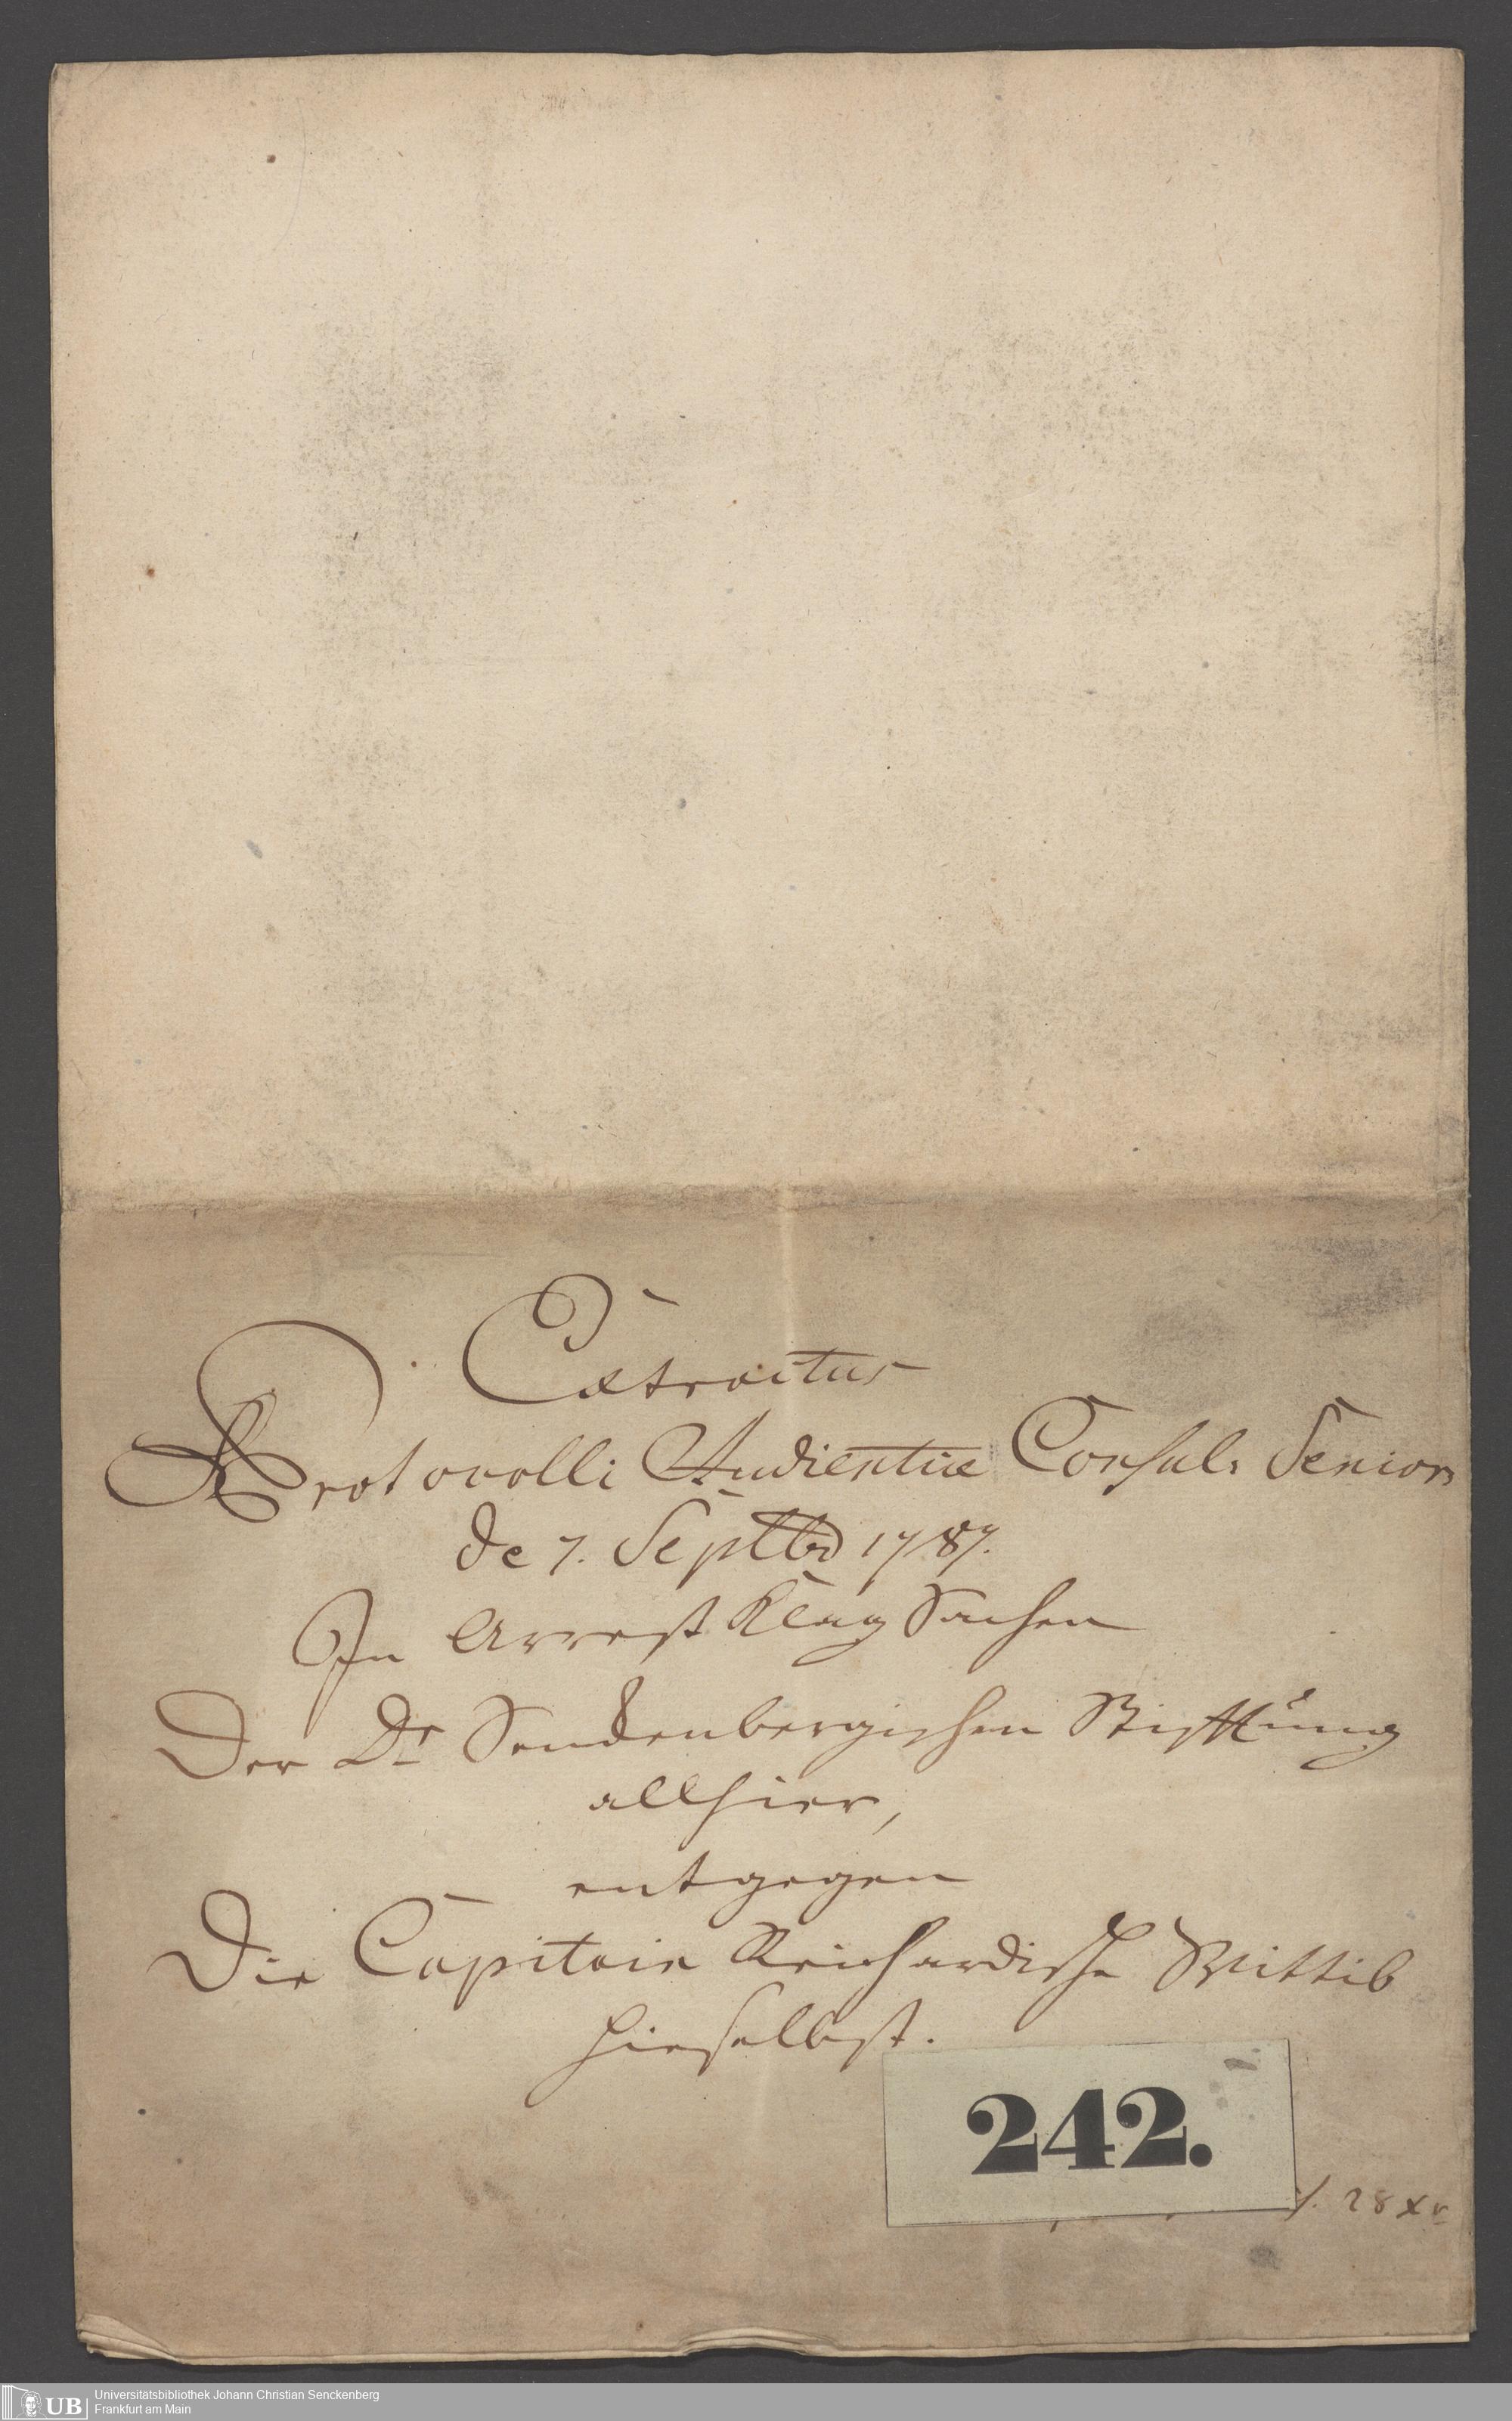 Extractus
Protocolli Audientiæ Consul. Senior.
de 7. Septbr 1787.
In Arrest Klag Sachen
Der Dr. Senckenbergischen Stifftung
allhier,
entgegen
Die Capitain Reichardische Wittib
hieselbst.
242.
28 xr
Universitätsbibliothek Johann Christian Senckenberg
Frankfurt am Main
UB